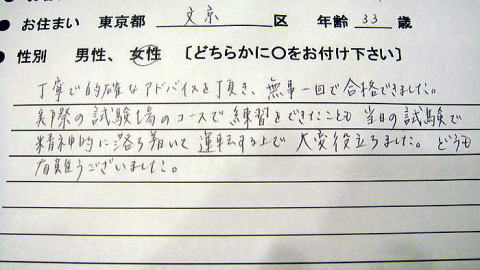 ● お住まい 東京都 文京 区 年齢 33 歳
● 性別 男性、女性 〔どちらかに〇をお付け下さい〕
丁寧で的確なアドバイスを頂き、無事一回で合格できました。
実際の試験場のコースで練習をできたことも当日の試験で
精神的に落ち着いて運転する上で大変役立ちました。どうも
有難うございました。